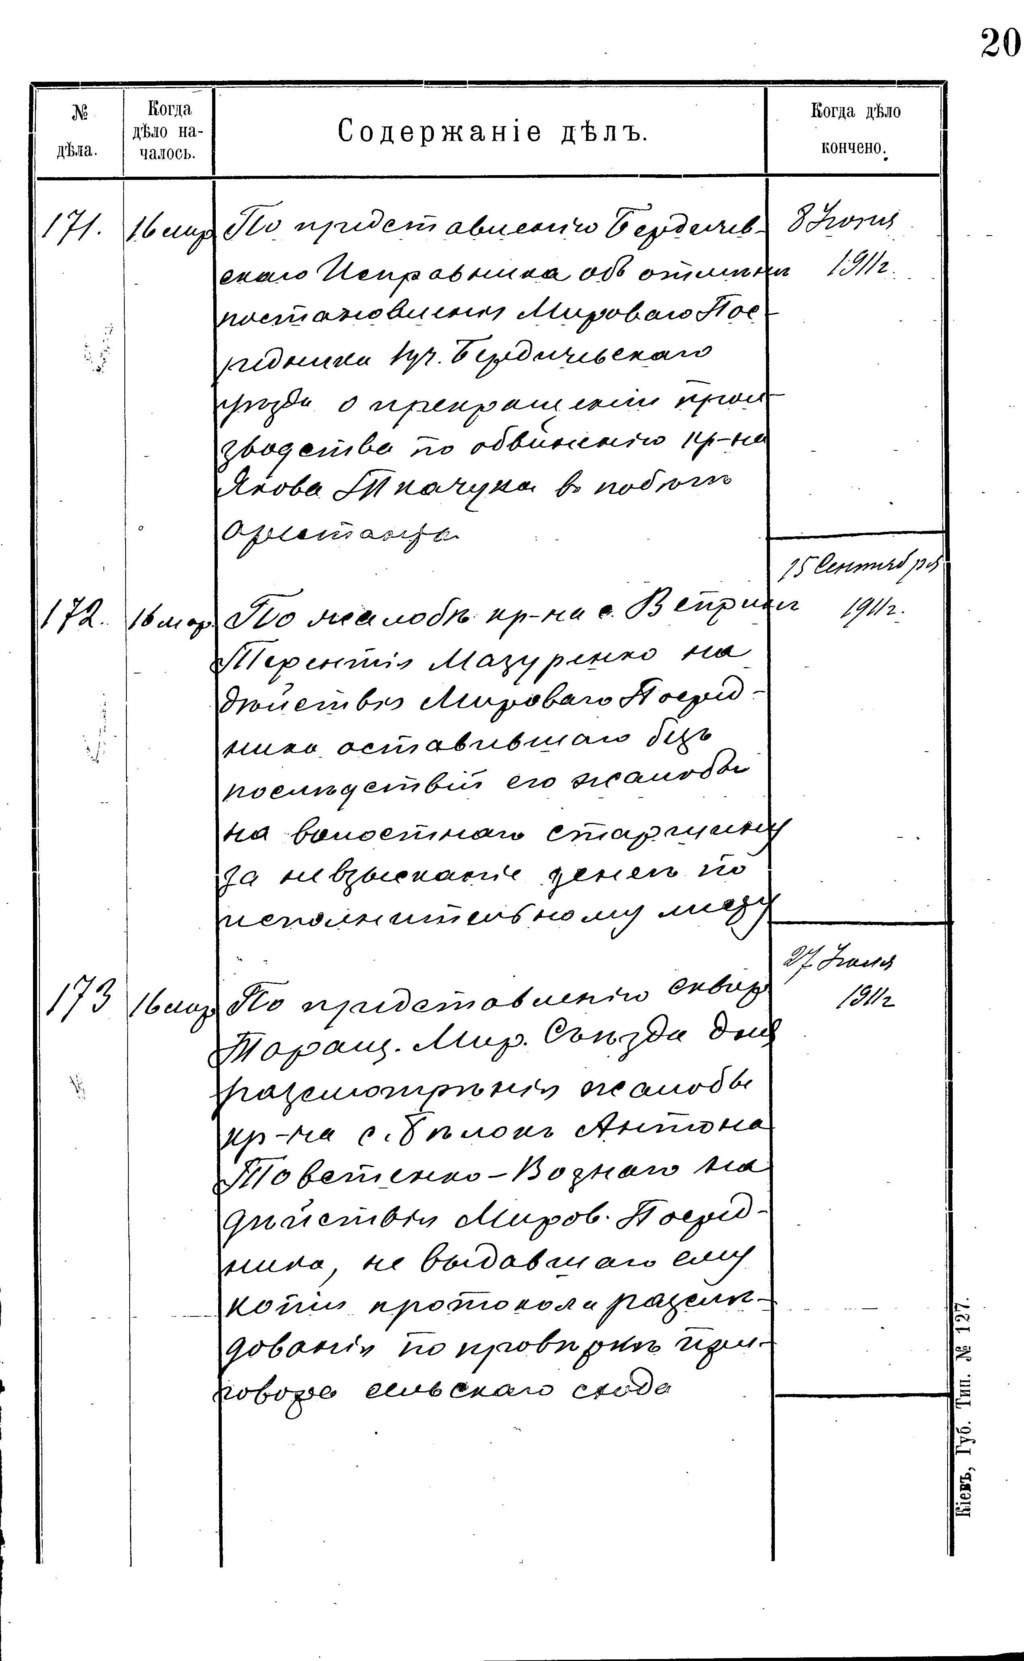 20
№ дѣла.
Когда дѣло на- чалось.
Содержаніе дѣлъ.
Когда дѣло кончено.
171. 16 мар По представленію Бердичев- 8 Іюня
скаго Исправника объ отмѣнѣ 1911г.
постановленія Мирового Пос-
редника 1 уч. Бердичевскаго
уѣзда о прекращеніи прои-
зводства по обвиненію кр-на
Якова Ткачука въ побѣгѣ
арестанта
15 Сентября
172. 16 мар. По жалобѣ кр-на с. Веприка 1911г.
Терентія Мазуренко на
дѣйствія Мирового Посред-
ника оставившаго безъ
послѣдствій его жалобы
на волостнаго старшину
за невзысканіе денегъ по
исполнительному листу
27 Іюля
173 16 мар По представленію Сквир 1911г
Таращ. Мир. Съѣзда для
разсмотрѣнія жалобы
кр-на с. Бѣлокъ Антона
Товстенко-Вознаго на
дѣйствія Миров. Посред-
ника, не выдавшаго ему
копіи протокола разслѣ-
дованія по провѣркѣ при-
говора сельскаго схода
Кіевъ, Губ. Тип. № 127.